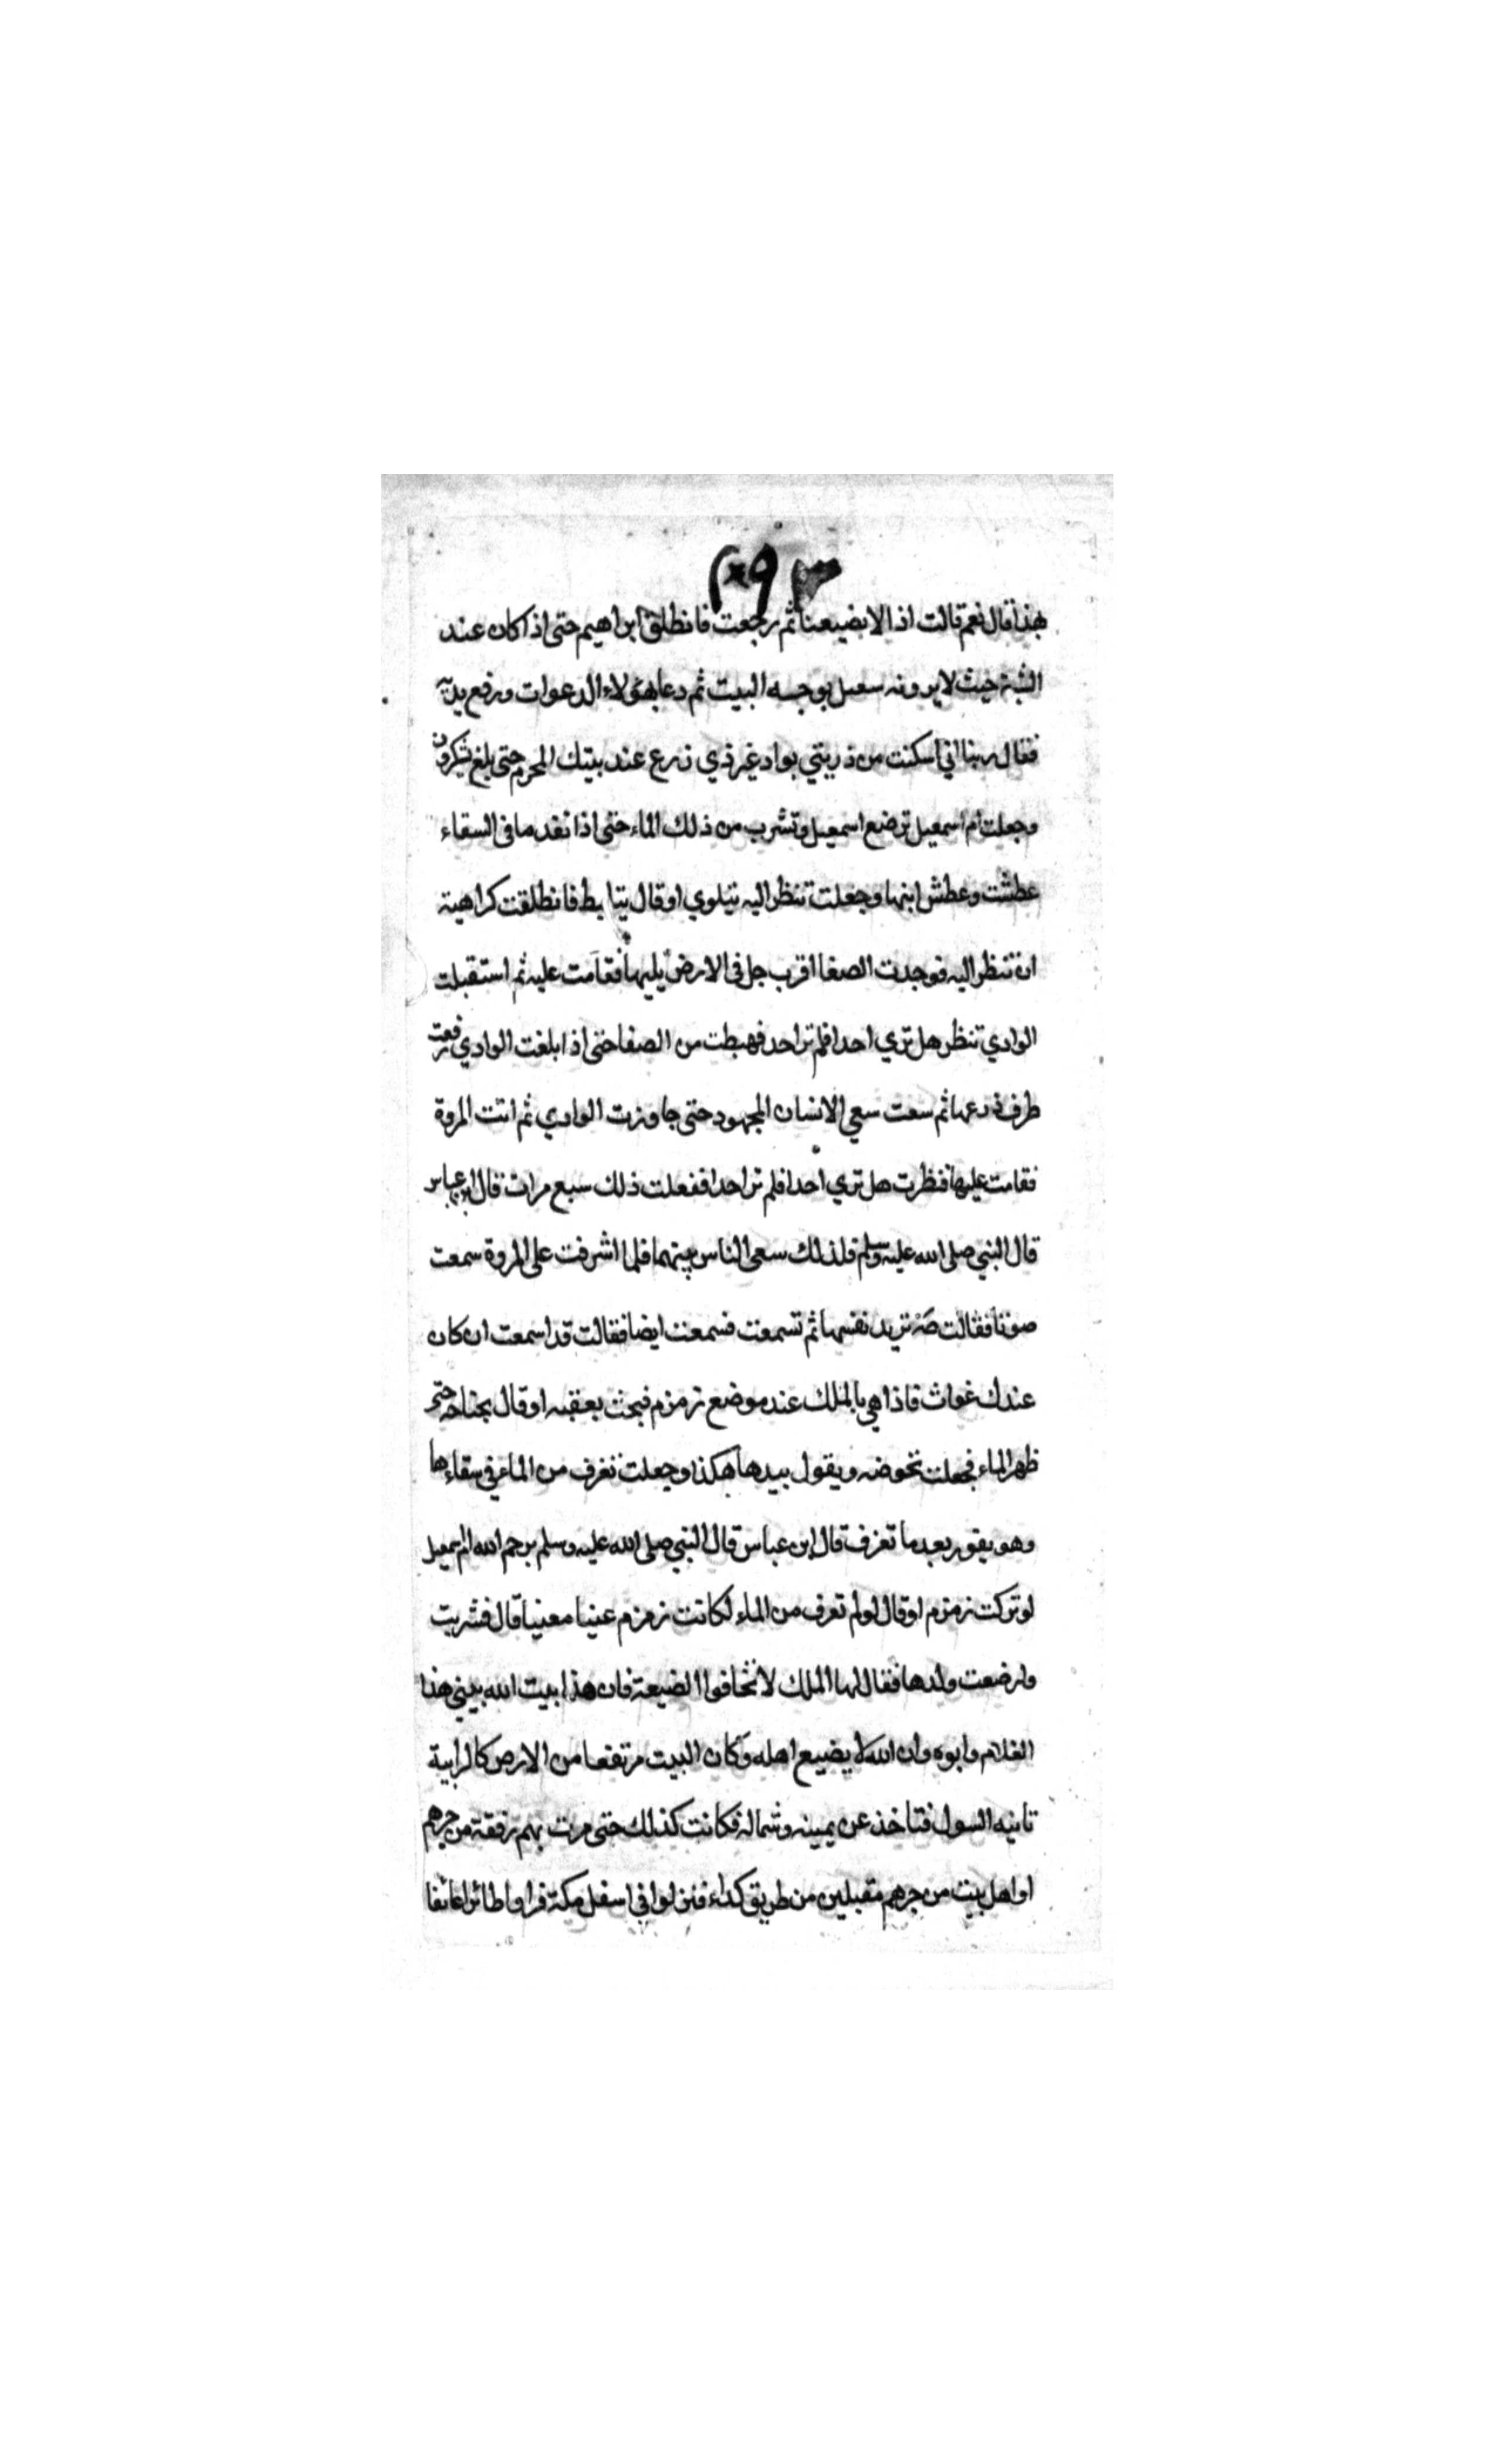 بهذا قال نعم قالت اذا لا يضيعنا ثم رجعت فانطلق ابراهيم حتى اذا كان عند
الثنية حيث لا يرونه بوجهه البيت ثم دعا بهؤلاء الدعوات ورفع يديه
فقال ربنا اني اسكنت من ذريتي بواد غير ذي زرع عند بيتك المحرم حتى بلغ يشكرون
وجعلت ام اسمعيل ترضع اسمعيل وتشرب من ذلك الماء حتى اذا نفد ما فى السقاء
عطشت وعطش ابنها وجعلت تنظر اليه يتلوي او قال يتلبط فانطلقت كراهية
ان تنظر اليه فوجدت الصفا اقرب جبل فى الارض يليها فقامت عليه ثم استقبلت
الوادي تنظر هل تري احدا فلم تر احد فهبطت من الصفا حتى اذا بلغت الوادي رفعت
طرف ذرعها ثم سعت سعي الانسان المجهود حتى جاوزت الوادي ثم اتت المروة
فقامت عليها فنظرت هل تري احدا فلم تر احدا ففعلت ذلك سبع مرات قال ابن عباس
قال النبي صلى الله عليه وسلم فلذلك سعى الناس بينهما فلما اشرفت على المروة سمعت
صوتا فقالت صه تريد نفسها ثم تسمعت فسمعت ايضا فقالت قد اسمعت ان كان
عندك غواث فاذا هي بالملك عند موضع زمزم فبحث بعقبه او قال بجناحه حتى
ظهر الماء فجعلت تحوضه ويقول بيدها هكذا وجعلت تغرف من الماء في سقاءها
وهو يفور بعد ما تغرف قال ابن عباس قال النبي صلى الله عليه وسلم يرحم الله ام اسمعيل
لو تركت زمزم او قال لو لم تعرف من الماء لكانت زمزم عينا معينا قال فشربت
وارضعت ولدها فقال لها الملك لا تخافوا الضيعة فان هذا بيت الله يبني هذا
الغلام وابوه وان الله لا يضيع اهله وكان البيت مرتفعا من الارض كالرابية
تاتيه السول فتاخذ عن يمينه وشماله فكانت كذلك حتى مرت بهم رفقة من جرهم
او اهل بيت من جرهم مقبلين من طريق كداء فنزلوا في اسفل مكة فراوا طائرا عائفا